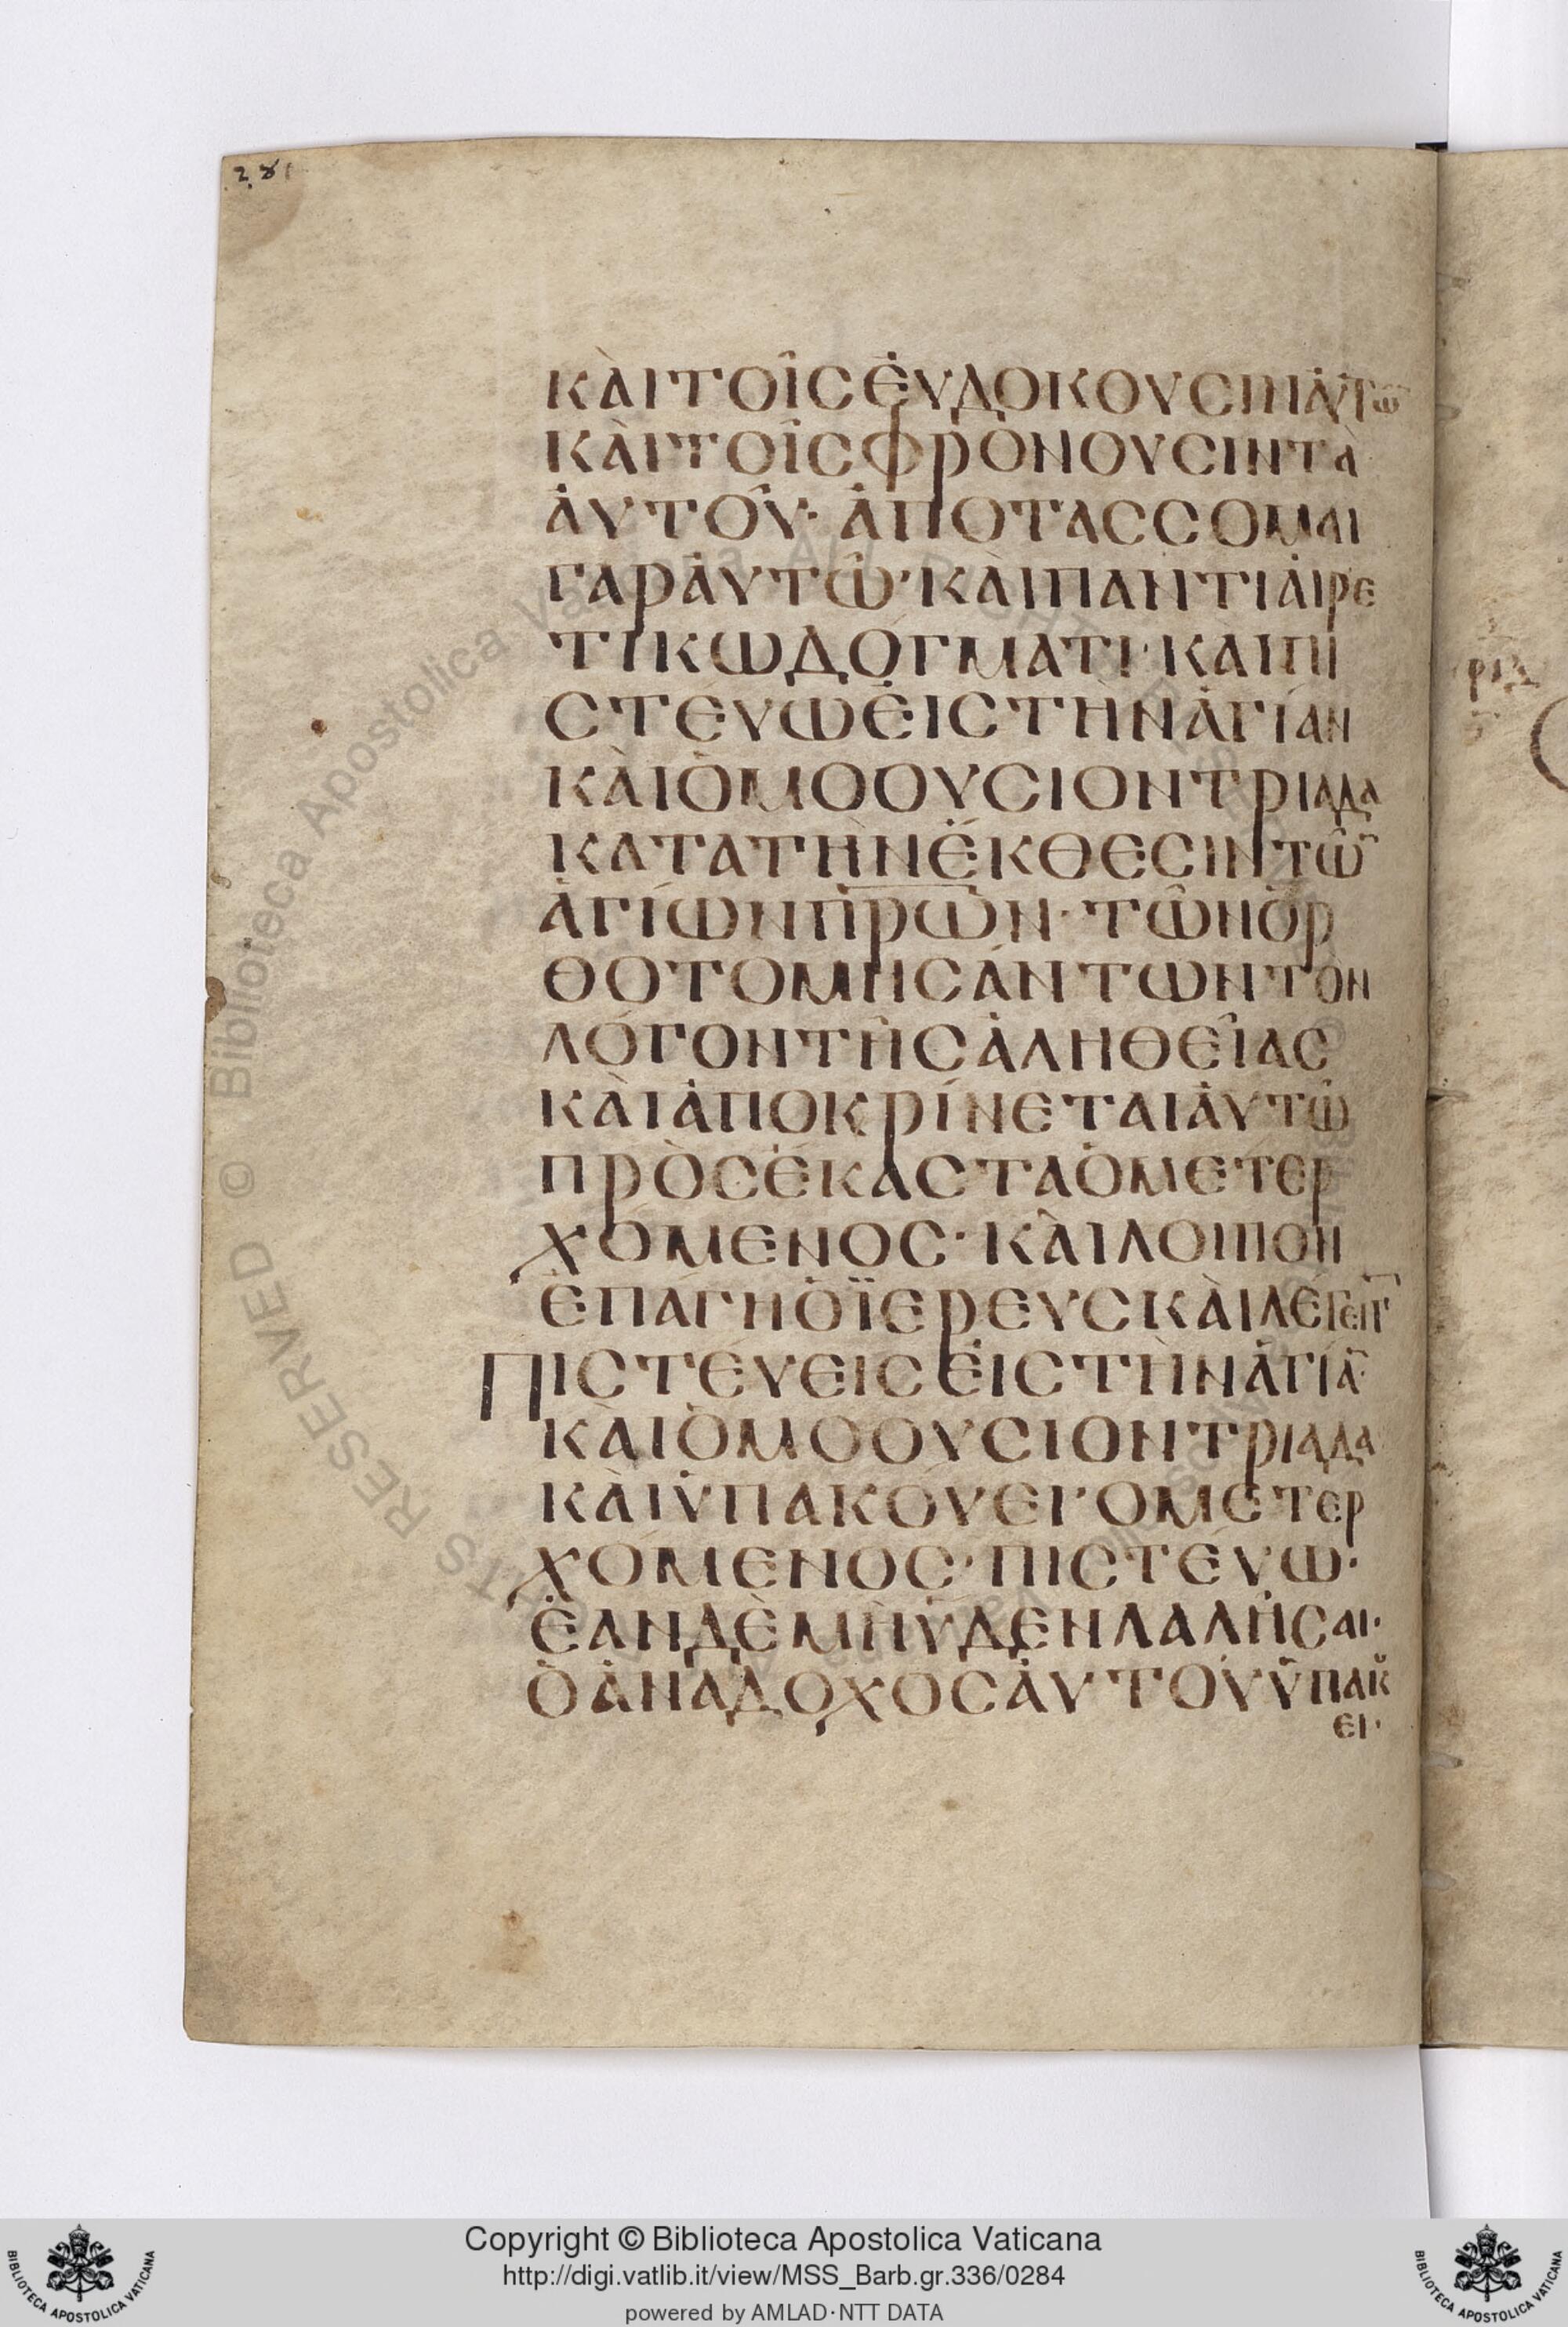 281
ΚΑΙ ΤΟΙC ΕΥΔΟΚΟΥCΙΝ ΑΥΤΩ
ΚΑΙ ΤΟΙC ΦΡΟΝΟΥCΙΝ ΤΑ
ΑΥΤΟΥ· ΑΠΟΤΑCCΟΜΑΙ
ΓΑΡ ΑΥΤΩ· ΚΑΙ ΠΑΝΤΙ ΑΙΡΕ
ΤΙΚΩ ΔΟΓΜΑΤΙ· ΚΑΙ ΠΙ
CΤΕΥΩ ΕΙC ΤΗΝ ΑΓΙΑΝ
ΚΑΙ ΟΜΟΟΥCΙΟΝ ΤΡΙΑΔΑ
ΚΑΤΑ ΤΗΝ ΕΚΘΕCΙΝ ΤΩ̅
ΑΓΙΩΝ Π̅Ρ̅Ω̅Ν· ΤΩΝ ΟΡ
ΘΟΤΟΜΗCΑΝΤΩΝ ΤΟΝ
ΛΟΓΟΝ ΤΗC ΑΛΗΘΕΙΑC
ΚΑΙ ΑΠΟΚΡΙΝΕΤΑΙ ΑΥΤΩ
ΠΡΟC ΕΚΑCΤΑ Ο ΜΕΤΕΡ
ΧΟΜΕΝΟC· ΚΑΙ ΛΟΙΠΟΝ
ΕΠΑΓΗ Ο ΪΕΡΕΥC ΚΑΙ ΛΕΓΕΙ
ΠΙCΤΕΥΕΙC ΕΙC ΤΗΝ ΑΓΙΑ̅·
ΚΑΙ ΟΜΟΟΥCΙΟΝ ΤΡΙΑΔΑ
ΚΑΙ ΥΠΑΚΟΥΕΙ· Ο ΜΕΤΕΡ
ΧΟΜΕΝΟC· ΠΙCΤΕΥΩ·
ΕΑΝ ΔΕ ΜΗ ΥΔΕΝ ΛΑΛΗCΑΙ·
Ο ΑΝΑΔΟΧΟC ΑΥΤΟΥ ΥΠΑΚȣ
ΕΙ·
© Biblioteca Apostolica Vaticana
Copyright © Biblioteca Apostolica Vaticana
http://digi.vatlib.it/view/MSS_Barb.gr.336/0284
powered by AMLAD·NTT DATA
BIBLIOTECA APOSTOLICA VATICANA
BIBLIOTECA APOSTOLICA VATICANA